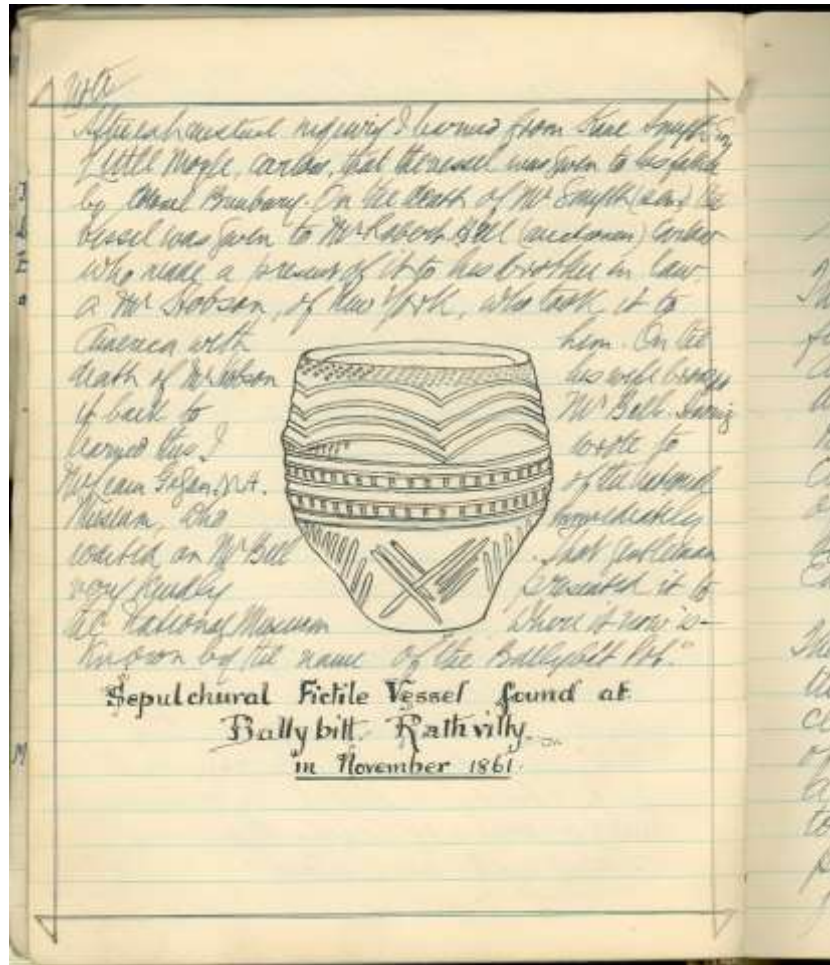 Note
After exhaustual inquiry I learned from Kane Smyth
of Little Moyle, Carlow, that the vessel was given to his father
by Colonel Bunbury. On the death of Mr Smyth (sen) the
vessel was given to Mr Robert Bell (auctioneer) Carlow
who made a present of it to his brother in law
a Mr Hobson, of New York, who took it to
America with him. On the
death of Mr Hobson his wife brought
it back to Mr Bell. Having
learned this I wrote to
of the National
Museum, who immediately
waited on Mr Bell. That gentleman
very kindly presented it to
the National Museum where it now is—
Known by the name of the Ballybitt Pot."
Sepulchural Fictile Vessel found at
Ballybitt. Rathvilly.
in November 1861.